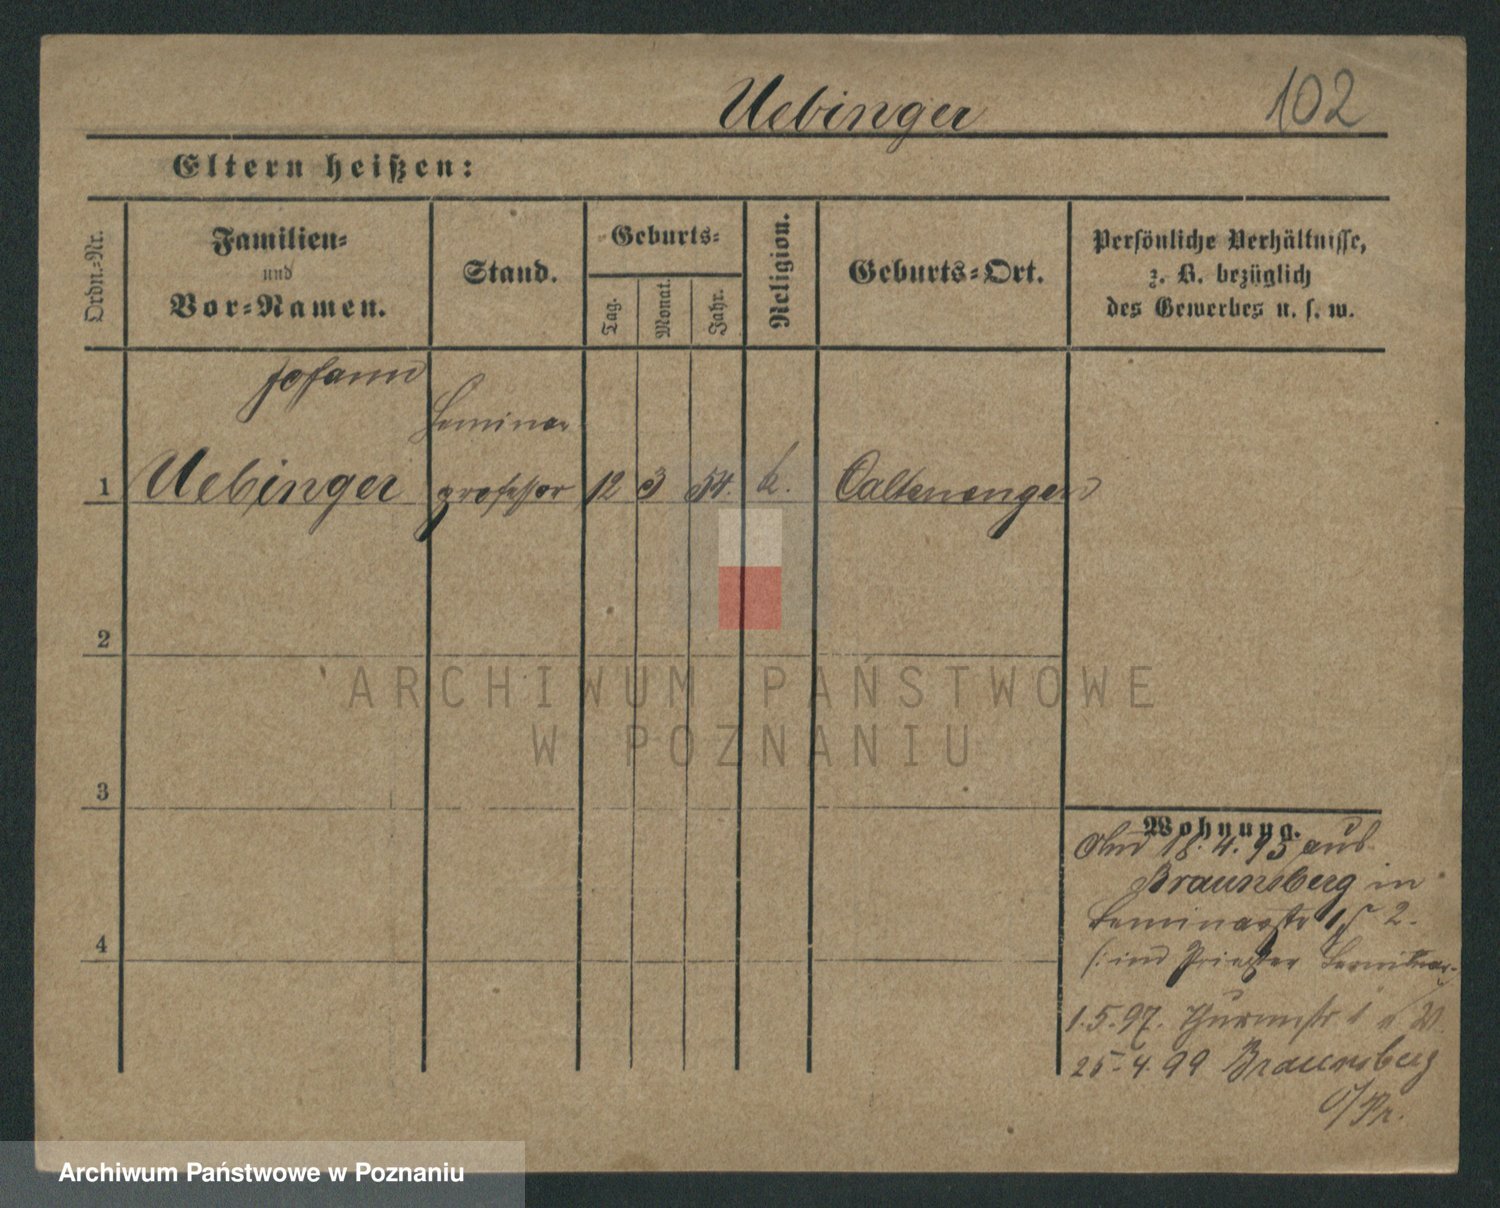 Uebinger 102
Eltern heißen:
Ordn.-Nr.
Familien-
und
Vor-Namen.
Stand.
Geburts-
Tag.
Monat.
Jahr.
Religion.
Geburts-Ort.
Persönliche Verhältnisse,
z. B. bezüglich
des Gewerbes u. s. w.
Johann
Seminar
1 Uebinger professor 12 3 54. k.
2
3
4
ARCHIWUM PAŃSTWOWE
W POZNANIU
Wohnung.
18.4.95 aus
Braunsberg in
Seminarstr 2.
Priester Seminar
1.5.97. Thurmstr
25.4.99 Braunsberg
O/Pr.
Archiwum Państwowe w Poznaniu